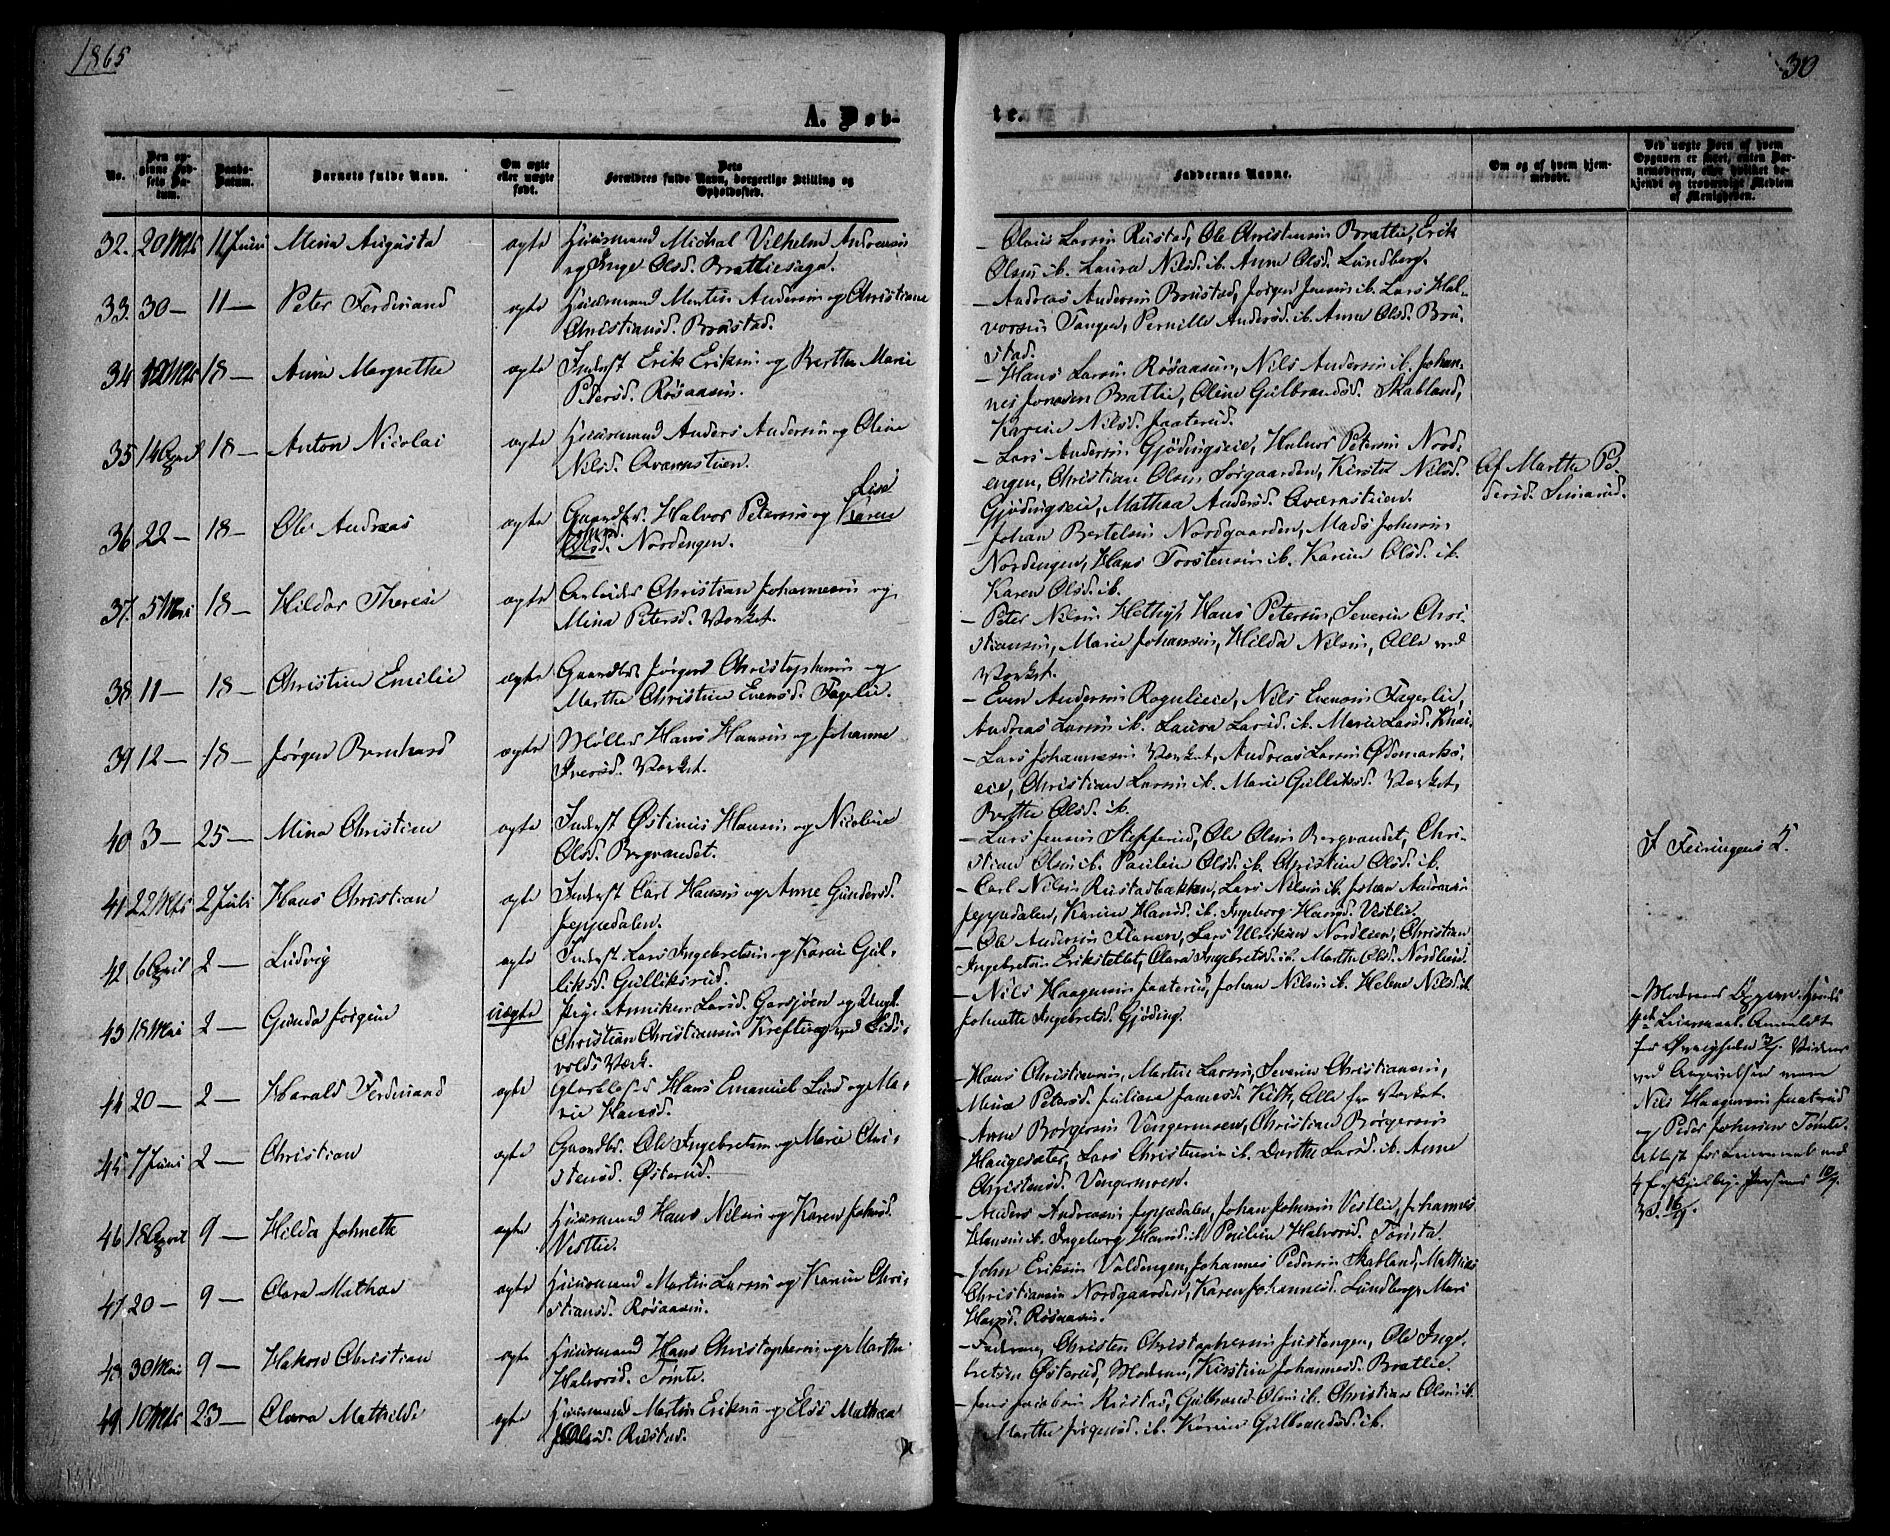 1865
30
A. Døb-
te.
No.
Den op-
givne Fød-
sels Da-
tum.
Daabs-
Datum.
Barnets fulde Navn.
Om ægte
eller uægte
født.
Dets
Forældres fulde Navn, borgerlige Stilling og
Opholdssted.
Faddernes Navne.
Om og af hvem hjem-
medøbt.
Ved uægte Børn af hvem
Opgaven er skeet, enten Bar-
nemoderen, eller hvilket be-
kjendt og troværdigt Medlem
af Menigheden.
32. 20 Mts 11 Juni Mina Augusta ægte Huusmand Michal Vilhelm Andersen
og Inge Olsd. Bratliesaga.
- Olaus Larsen Rustad, Ole Christensen Bratlie, Erik
Olsen ib. Laura Nilsd. ib. Anne Olsd. Lundberg.
33. 30 - 11 - Peter Ferdinand ægte Huusmand Martin Andersen og Christiane
Christiansd. Brustad.
- Andreas Andersen Brustad, Jørgen Jensen ib. Lars Hal-
vorsen Tangen, Pernille Andersd. ib. Anne Olsd. Bru-
stad.
34 12 Mts 18 - Anne Margrethe ægte Inderst Erik Eriksen og Berthe Marie
Pedersd. Røsaasen.
- Hans Larsen Røsaasen, Nils Andersen ib. Johan-
nes Jonsen Bratlie, Oline Gulbrandsd. Skabland,
Karine Nilsd. Paaterud.
35 14 April 18 - Anton Nicolai ægte Huusmand Anders Andersen og Oline
Nilsd. Qværnstuen.
- Lars Andersen Gjødingseie, Halvor Petersen Nord-
engen, Christian Olsen Sørgaarden, Kirstin Nilsd.
Gjødingseie, Mathea Andersd. Qværnstuen.
Af Marthe Pe-
dersd.
36 22 - 18 - Ole Andreas ægte Gaardbr. Halvor Petersen og Karen Lise
Olsd. Nordengen.
- Johan Bertelsen Nordgaarden, Mads Johnsen
Nordengen, Hans Torstensen ib. Karine Olsd. ib.
Karen Olsd. ib.
37. 5 Mai 18 - Hildar Therese ægte Arbeider Christian Johannesen og
Mina Petersd. Værket.
- Peter Nilsen Hans Petersen, Severin Chri-
stiansen, Marie Johansen, Hilda Nilsen, Alle ved
Værket.
38. 11 - 18 - Christine Emilie ægte Gaardbr. Jørgen Christophersen og
Marthe Christine Evensd. Fagerlie.
- Even Andersen Nils Evensen Fagerlie,
Andreas Larsen ib. Laura Larsd. ib. Maria Larsd.
39. 12 - 18 - Jørgen Bernhard ægte Møller Hans Hansen og Johanne
Iversd. Værket.
- Lars Johannesen Værket, Andreas Larsen Ødemarks-
eie, Christian Larsen ib. Marie Gulliksd. Værket,
Berthe Olsd. ib.
40. 3 - 25 - Mina Christine ægte Inderst Østinius Hansen og Nicoline
Olsd. Bergvandet.
- Lars Jensen Stefferud, Ole Olsen Bergvandet, Chri-
stian Olsen ib. Pauline Olsd. ib. Christine Olsd. ib.
I Feiringens
41. 22 Mts 2 Juli Hans Christian ægte Inderst Carl Hansen og Anne Gundersd.
Jeppedalen.
- Carl Nilsen Rustadbakken, Lars Nilsen ib. Johan Andersen
Jeppedalen, Karine Hansd. ib. Ingeborg Hansd. Vestlie.
42. 6 April 2 - Ludvig ægte Inderst Lars Ingebretsen og Karen Gul-
liksd. Gulliksrud.
- Ole Andersen Flanen, Lars Ulriksen Nordlien, Christian
Ingebretsen Erikstellet, Clara Ingebretsd. ib. Marthe Olsd. Nordlien.
43 18 Mai 2 - Gunda Jørgine uægte Pige Anniken Larsd. Garsjøen og Ungk.
Christian Christiansen Krefting ved Eids-
volds Værk.
- Nils Haagensen Paaterud, Johan Nilsen ib. Helene Nilsd. ib.
Johnette Ingebretsd. Gjøding.
- Moderens
4de Leiermaal. Anmeldt
for
ved Angivelsen vare
Nils Haagensen Paaterud
og Peder Johnsen Tømte.
Attest for Leiermaal
44 20 - 2 - Harald Ferdinand ægte Glasblæser Hans Emanuel Lund og Ma-
rie Hansd.
- Hans Christiansen, Martin Larsen, Severin Christiansen,
Mina Petersd. Juliane Jamesd. Kith, Alle fra Værket.
45. 7 Juni 2 - Christian ægte Gaardbr. Ole Ingebretsen og Marie Chri-
stensd. Østerud.
- Arne Børgersen Vengermoen, Christian Børgersen
Haugesæter, Lars Christensen ib. Dorthe Larsd. ib. Anne
Christensd. Vengermoen.
46 18 April 9 - Hilda Johnette ægte Huusmand Hans Nilsen og Karen Johnsd.
Vestlie.
- Anders Andreasen Jeppedalen, Johan Johnsen Vestlie, Johannes
Hansen ib. Ingeborg Hansd. ib. Pauline Halvorsd. Tømte.
47. 20 - 9 - Clara Mathea ægte Huusmand Martin Larsen og Karine Chri-
stiansd. Røsaasen.
- John Eriksen Valdengen, Johannes Pedersen Skabland, Mathias
Christiansen Nordgaarden, Karen Johannesd. Lundberg, Mari
Hansd. Røsaasen.
48 30 Mai 9 - Hakon Christian ægte Huusmand Hans Christophersen og Marthe
Halvorsd. Tømte.
- Faderen, Christen Christophersen Justengen, Ole Inge-
bretsen Østerud, Moderen, Kirstine Johannesd. Bratlie.
49. 10 Mts 23 - Clara Mathilde ægte Huusmand Martin Eriksen og Else Mathea
Olsd. Rustad.
- Jens Jacobsen Rustad, Gulbrand Olsen ib. Christian Olsen ib.
Marthe Jørgensd. ib. Karine Gulbrandsd. ib.